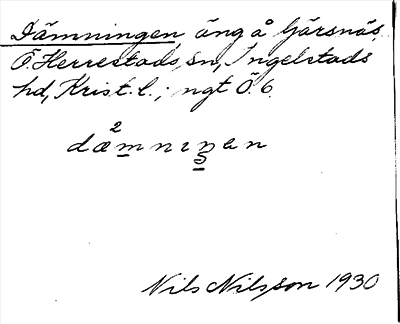 Dämningen äng å Gärsnäs,
Ö. Herrestads sn, Ingelstads
hd, Krist. l.; ngt Ö. 6.
2
dæmnıŋan
Nils Nilsson 1930